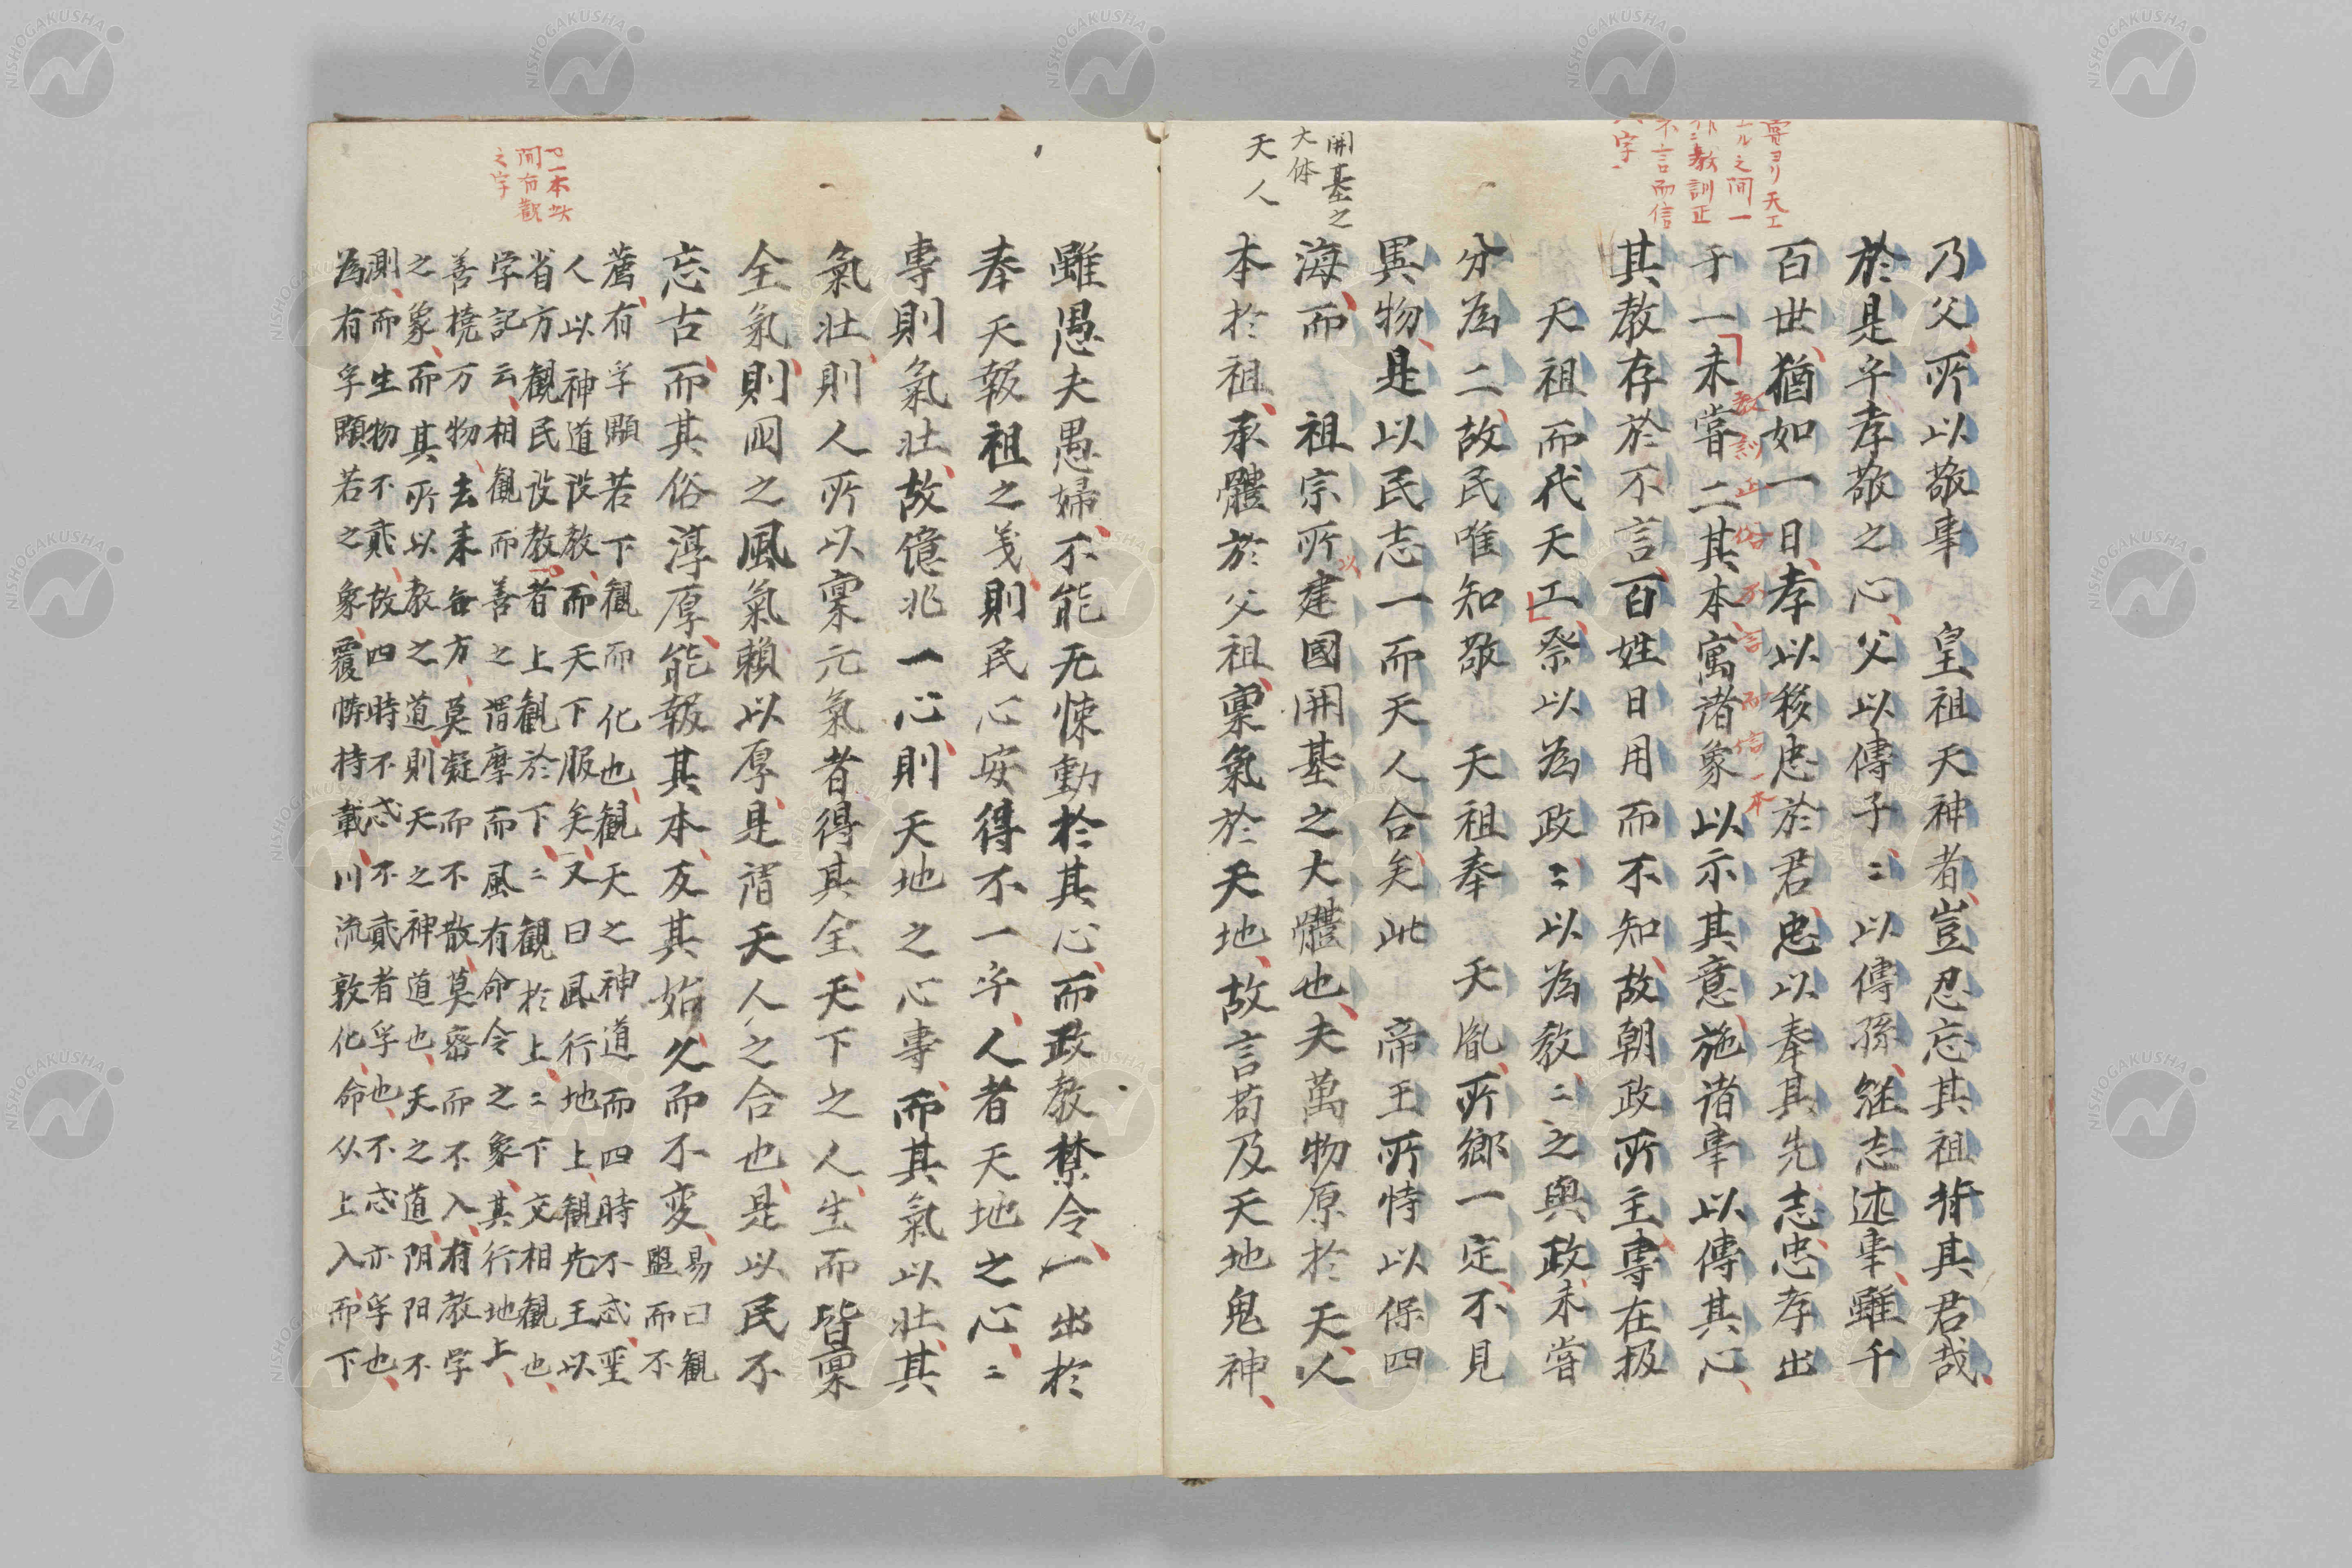 乃父、所以敬事　皇祖天神者、豈忍忘其祖背其君哉、
於是乎孝敬之心、父以傳子ミ以傳孫、継志述事、雖千
百世、猶如一日、孝以移忠於君、忠以奉其先志、忠孝出
于一、未嘗二其本、寓諸象以示其意、施諸事以傳其心、
教訓正俗不言而信一本
其教存於不言、百姓日用而不知、故朝政所主、専在报
天祖而代天工、祭以為政ミ以為教ミ之與政、未嘗
分為二、故民唯知敬　天祖奉　天胤、所鄉一定、不見
異物、是以民志一而天人合矣、此　帝王所恃以保四
海、而　祖宗所以建國開基之大體也、夫萬物原於天、人
本於祖、承體於父祖、稟氣於天地、故言苟及天地鬼神、
開基之
大体
天人
雖愚夫愚婦、不能无悚動於其心、而政教禁令、一出於
奉天報祖之義、則民心安得不一乎、人者天地之心、ミ
專則氣壮、故億兆一心、則天地之心專、而其氣以壮、其
氣壮、則人所以稟元氣者得其全、天下之人、生而皆稟
全氣、則国之風氣頼以厚、是謂天人之合也、是以民不
忘古、而其俗淳厚、能報其本、反其始、久而不変、
易曰観
盥而不
薦、有孚顒若、下観而化也、観天之神道、而四時不忒、聖
人以神道設教、而天下服矣、又曰風行地上、観、先王以
省方観民設教、者上観於下、ミ観於上、ミ下交相観也、
学記云、相観而善之謂摩、而風有命令之象、其行地上、
善撓万物、去来無方、莫凝而不散、莫密而不入、有教学
之象、而其所以教之道、則天之神道也、天之道、阴阳不
測、而生物不貳、故四時不忒、不貳者孚也、不忒亦孚也、
為有孚顒若之象、覆幬持載、川流敦化、命从上入而下
一本此
間有觀
之字